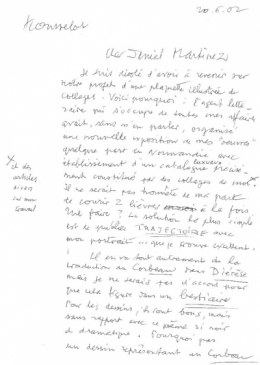 20.6.02
Cher Daniel Martinez
Je suis désolé d'avoir à revenir sur
notre projet d'une plaquette illustrée de
collages. Voici pourquoi : l'agent litté-
raire qui s'occupe de toutes mes affaires
avait, sans m'en parler, organisé
une nouvelle exposition de mes "œuvres"
quelque part en Normandie avec
établissement d'un catalogue précisé-
ment constitué par des collages de moi.
× et des
articles
divers
sur mon
travail
Il ne serait pas honnête de ma part
de courir 2 lièvres à la fois.
Que faire ? La solution la plus simple
est de publier TRAJECTOIRE avec
mon portrait que je trouve excellent.
Il en va tout autrement de la
traduction du Corbeau dans Diérèse
mais je ne serais pas d'accord pour
que cela figure dans un bestiaire
Pour les dessins, ils sont bons, mais
sans rapport avec ce poème si noir
et dramatique. Pourquoi pas
un dessin représentant un Corbeau